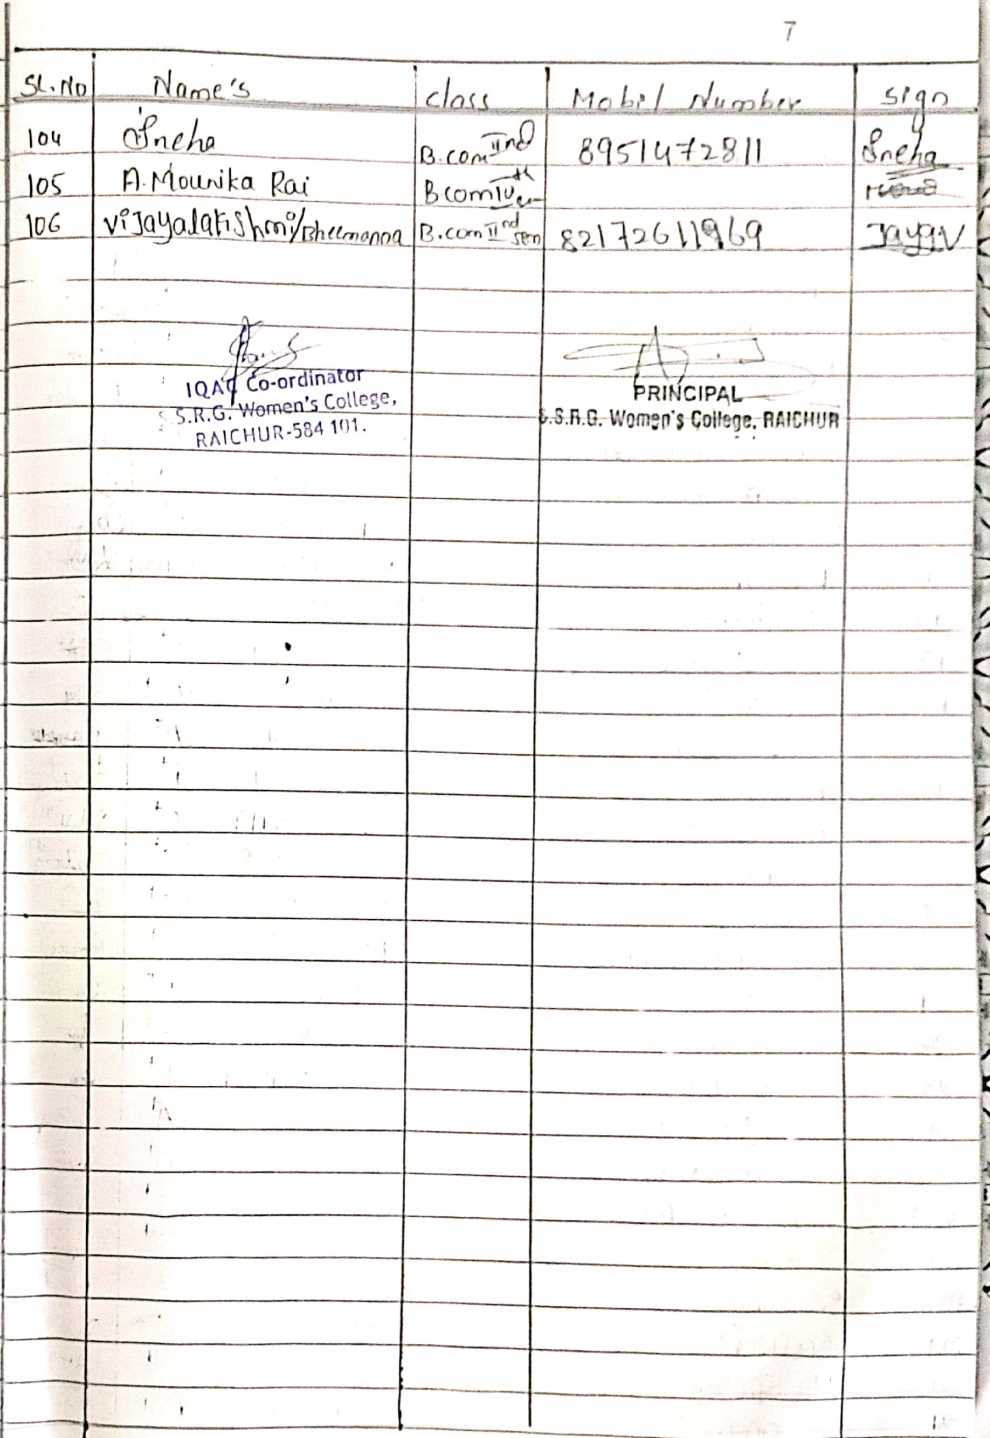 7
SL.No Name's class Mobil Number sign
104 Sneha B.com IInd 8951472811 Sneha
105 A.Mounika Rai Bcom IVth
106 vijayalakshmi/Bheemanna B.com IInd sem 82172611969 JayaV
IQAC Co-ordinator
S.R.G. Women's College,
RAICHUR-584 101.
PRINCIPAL
S.S.R.G. Women's College, RAICHUR